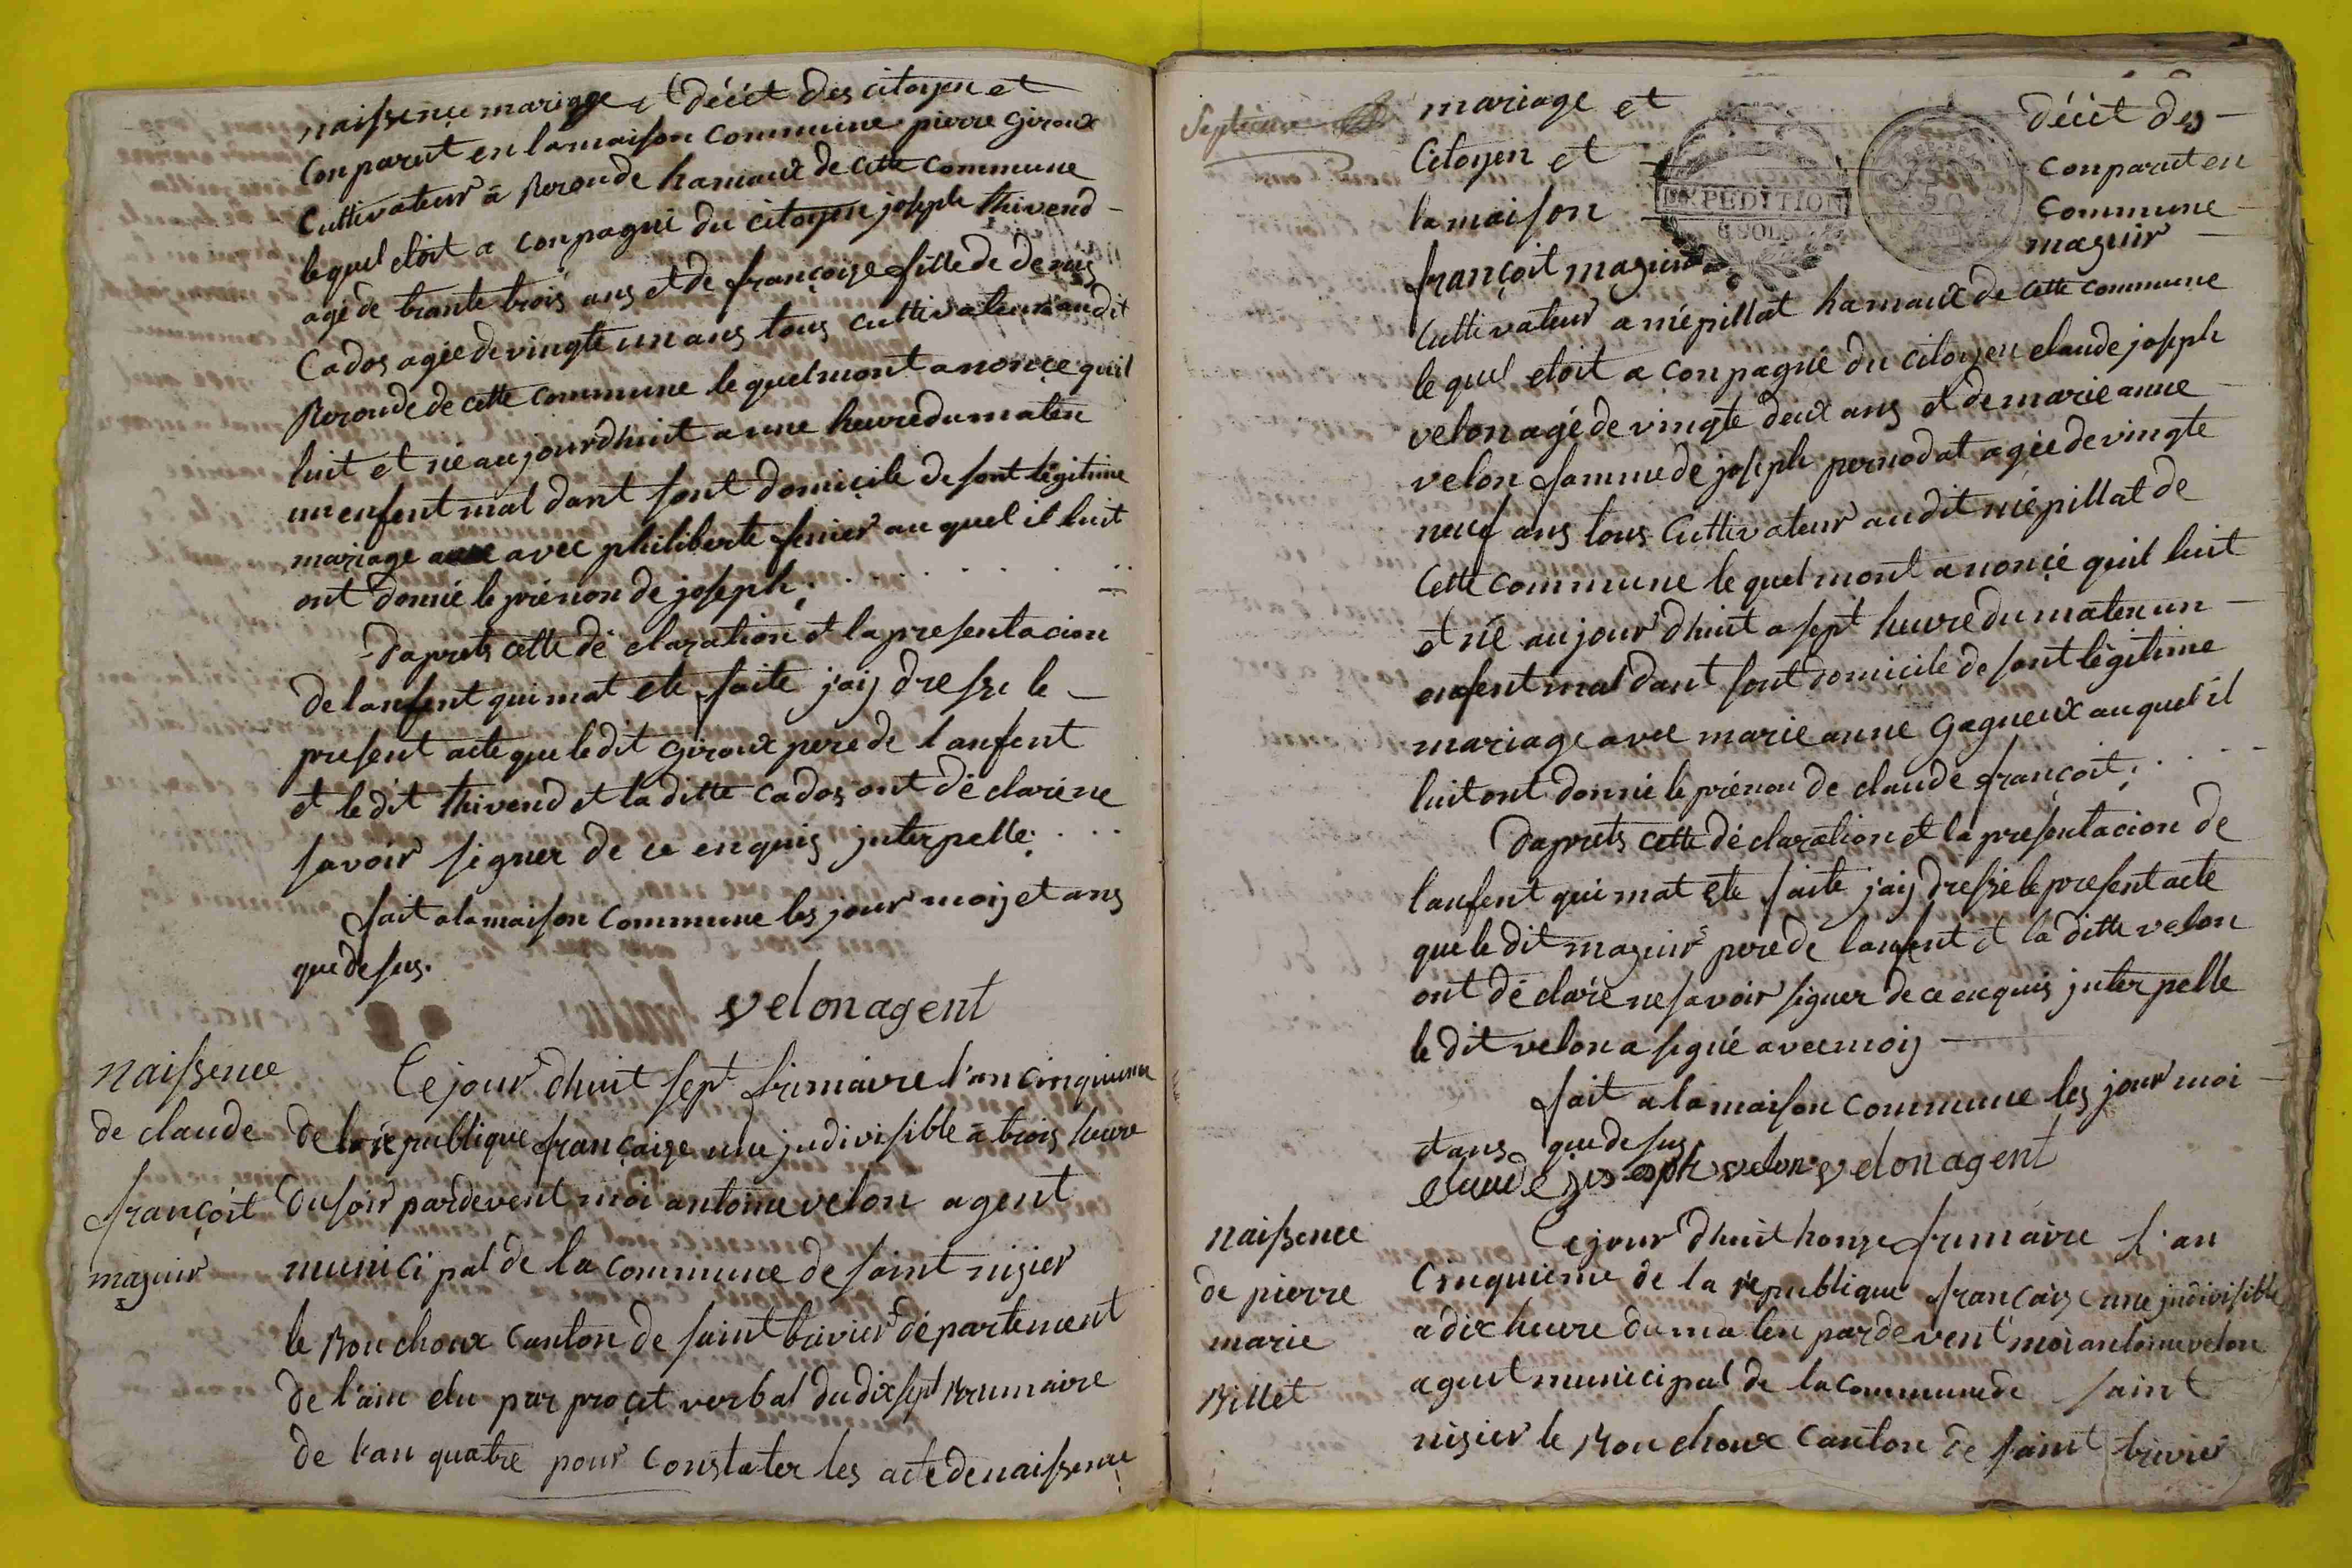 naissence mariage et décêt des citoyen et
conparut en la maison commune pierre Giroux
Cultivateur a Reronde hamaux de cette commune
le quel etoit a conpagné du citoyen joseph thivend
agé de trante trois ans et de françoize fille de denis
Cados agée de vingte un ans tous cultivateur audit
Reronde de cette commune le quel mont anoncé quil
luit et né aujourdhuit a une heure du maten
un enfent mal dant sont domicile de sont légitime
mariage avec philiberte fenier au quel il luit
ont donné le prénon de joseph;
daprets cette dé claration et la presentacion
de lanfent qui mat ete faite jaij dressé le
present acte que ledit Giroux pere de lanfent
et le dit thivend et la ditte cados ont dé claré ne
savoir signer de ce enquis jnterpelle;
fait a la maison commune les jour moij et ans
que desus.
velon agent
Naissence
de claude
françoit
mazuir
Cejour dhuit sept frimaire l'an cinquieme
de la république françaize une jndivisible a trois heure
du soir pardevent moi antoine velon agent
munici pal de la commune de saint nizier
le Bouchoux canton de saint trivier département
de l'ain elu par procet verbal du dix sept Brumaire
de l'an quatre pour constater les acte de naissence
Septieme
mariage et décêt des
Citoyen et conparut en
la maison commune
françoit mazuir mazuir
EXPÉDITION
Cultivateur a népillat hamaux de cette commune
le quel etoit a conpagné du citoyen claude joseph
velon agé de vingte deux ans et de marie anne
velon famme de joseph pernodat agée de vingte
neuf ans tous Cultivateur audit népillat de
Cette commune le quel mont anoncé quil luit
et né aujour dhuit a sept heure du maten un
enfent mal dant sont domicile de sont légitime
mariage avec marie anne Gagneux au quel il
luit ont donné le prénon de claude françoit;
daprets cette dé claration et la presentacion de
lanfent qui mat ete faite jaij dressé le present acte
que le dit mazuir pere de lanfent et la ditte velon
ont dé claré ne savoir signer de ce enquis jnterpelle
le dit velon a signé avec moij
fait a la maison commune les jour moi
et ans que desus.
claude joseph velon velon agent
Naissence
de pierre
marie
Billet
Cejour dhuit honze frimaire l'an
Cinquieme de la république françaize une jndivisible
a dix heure du maten pardevent moi antoine velon
agent municipal de la commune de saint
nizier le Bouchoux canton de saint trivier